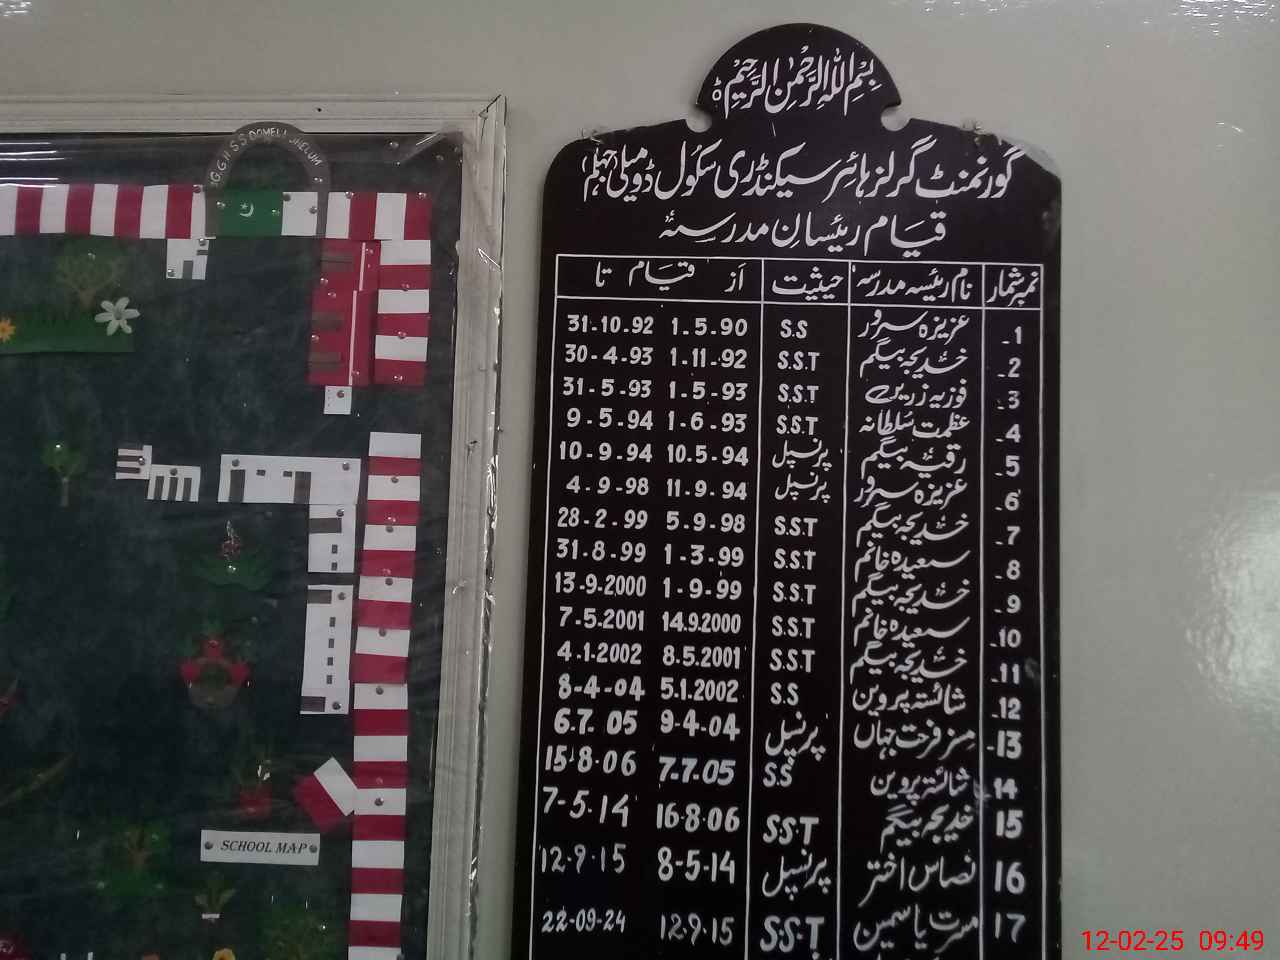 G.G.H.S.S DOMELI JHELUM
SCHOOL MAP
بِسْمِ اللهِ الرَّحْمٰنِ الرَّحِيْمِ ۝
گورنمنٹ گرلز ہائر سیکنڈری سکول ڈومیلی جہلم
قیام رئیسانِ مدرسہ
نمبر شمار نام رئیسہ مدرسہ حیثیت از قیام تا
1- عزیزہ سرور S.S 1.5.90 31-10-92
2- خدیجہ بیگم S.S.T 1-11-92 30-4-93
3- فوزیہ زریں S.S.T 1-5-93 31-5-93
4- عظمت سلطانہ S.S.T 1-6-93 9-5-94
5- رقیہ بیگم پرنسپل 10.5-94 10-9-94
6- عزیزہ سرور پرنسپل 11-9-94 4-9-98
7- خدیجہ بیگم S.S.T 5-9-98 28-2-99
8- سعیدہ خانم S.S.T 1-3-99 31-8-99
9- خدیجہ بیگم S.S.T 1-9-99 13-9-2000
10- سعیدہ خانم S.S.T 14.9.2000 7-5-2001
11- خدیجہ بیگم S.S.T 8.5.2001 4-1-2002
12- شائستہ پروین S.S 5.1.2002 8-4-04
13- مسز فرحت جہاں پرنسپل 9-4-04 6.7.05
14- شائستہ پروین S.S 7-7-05 15-8-06
15 خدیجہ بیگم S.S.T 16-8-06 7-5-14
16 نصاس اختر پرنسپل 8-5-14 12-9-15
17 مسرت یاسمین S.S.T 12.9.15 22-09-24
12-02-25 09:49